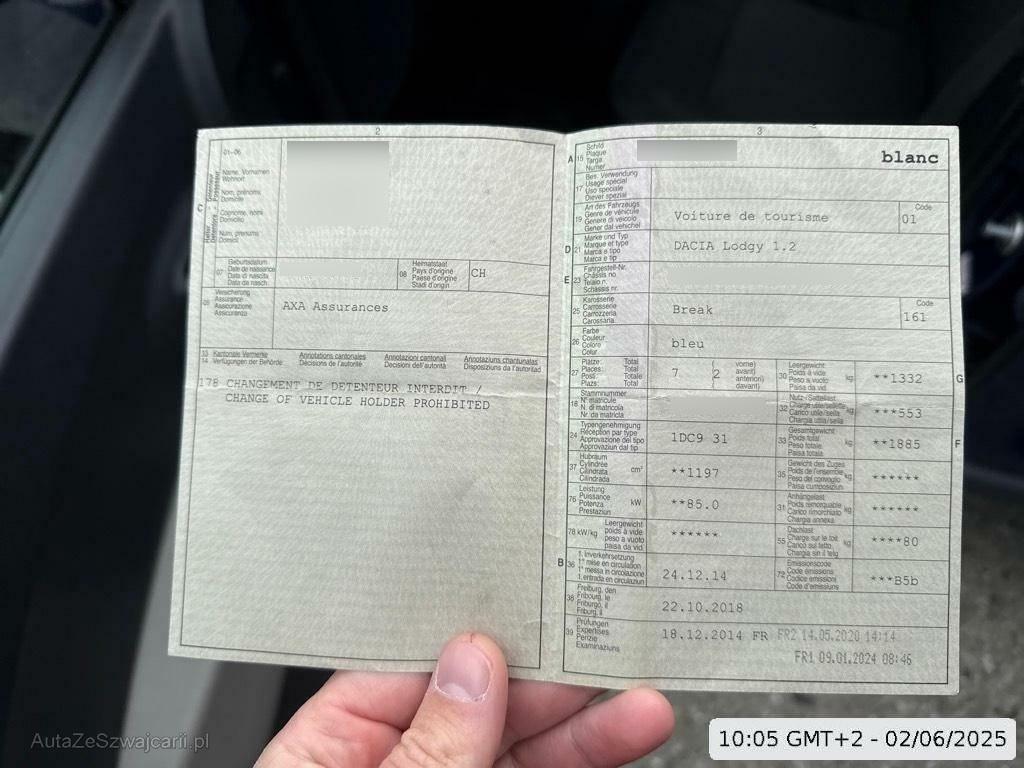 2
01-06
Name, Vornamen
Wohnort
Nom, prénoms
Domicile
Cognome, nomi
Domicilio
Num, prenums
Domicil
C
07
Geburtsdatum
Date de naissance
Data di nascita
Data da nasch.
08
Heimatstaat
Pays d'origine
Paese d'origine
Stadi d'origin
CH
09
Versicherung
Assurance
Assicurazione
Assicuranza
AXA Assurances
13 Kantonale Vermerke
14 Verfügungen der Behörde
Annotations cantonales
Décisions de l'autorité
Annotazioni cantonali
Decisioni dell'autorità
Annotaziuns chantunalas
Disposiziuns da l'autoritad
178 CHANGEMENT DE DETENTEUR INTERDIT /
CHANGE OF VEHICLE HOLDER PROHIBITED
3
A 15
Schild
Plaque
Targa
Numer
blanc
17
Bes. Verwendung
Usage spécial
Uso speciale
Diever spezial
19
Art des Fahrzeugs
Genre de véhicule
Genere di veicolo
Gener dal vehichel
Voiture de tourisme
Code
01
D 21
Marke und Typ
Marque et type
Marca e tipo
Marca e tip
DACIA Lodgy 1.2
E 23
Fahrgestell-Nr.
Châssis no
Telaio n.
Schassis nr.
25
Karosserie
Carrosserie
Carrozzeria
Carossaria
Break
Code
161
26
Farbe
Couleur
Colore
Colur
bleu
27
Plätze: Total
Places: Total
Posti: Totale
Plazs: Total
7
(2
vorne)
avant)
anteriori)
davant)
30
Leergewicht
Poids à vide
Peso a vuoto
Paisa da vid
kg
**1332
G
18
Stammnummer
N° matricule
N. di matricola
Nr. da matricla
32
Nutz-/Sattellast
Charge utile/sellette
Carico utile/sella
Chargia utila/sella
kg
***553
24
Typengenehmigung
Réception par type
Approvazione del tipo
Approvaziun dal tip
1DC9 31
33
Gesamtgewicht
Poids total
Peso totale
Paisa totala
kg
**1885
F
37
Hubraum
Cylindrée
Cilindrata
Cilindrada
cm³
**1197
35
Gewicht des Zuges
Poids de l'ensemble
Peso del convoglio
Paisa cumposiziun
kg
******
76
Leistung
Puissance
Potenza
Prestaziun
kW
**85.0
31
Anhängelast
Poids remorquable
Carico rimorchiato
Chargia annexa
kg
******
78 kW/kg
Leergewicht
poids à vide
peso a vuoto
paisa da vid
******
55
Dachlast
Charge sur le toit
Carico sul tetto
Chargia sin il tetg
kg
****80
B 36
1. Inverkehrsetzung
1ʳᵉ mise en circulation
1ª messa in circolazione
1. entrada en circulaziun
24.12.14
72
Emissionscode
Code émissions
Codice emissioni
Code d'emissiuns
***B5b
38
Freiburg, den
Fribourg, le
Friburgo, il
Friburg, il
22.10.2018
39
Prüfungen
Expertises
Perizie
Examinaziuns
18.12.2014 FR FR2 14.05.2020 14:14
FR1 09.01.2024 08:46
AutaZeSzwajcarii.pl
10:05 GMT+2 - 02/06/2025